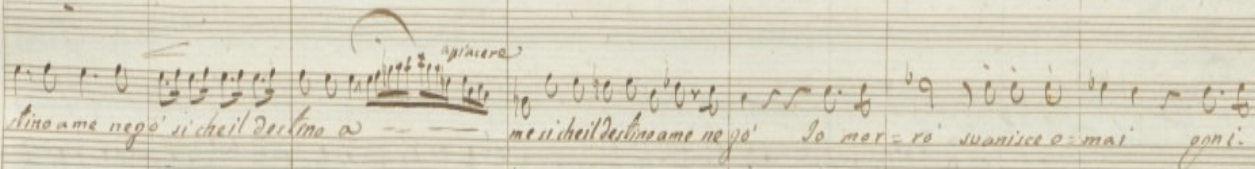 a piacere
stino a me negò si che il destino a — — — me si che il destino a me negò Io mor = rò svanisce o = mai ogni